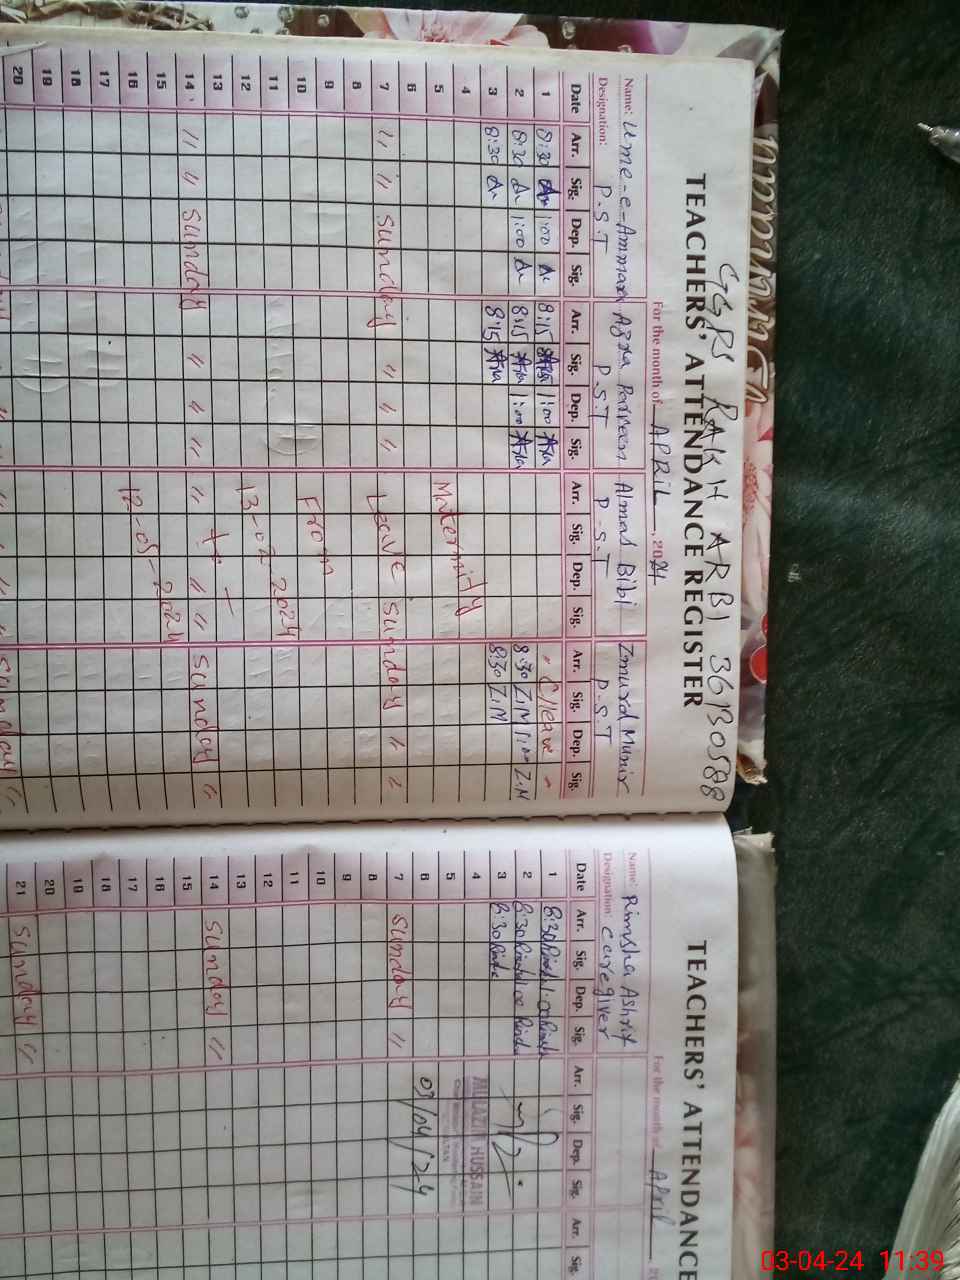 GGPS RAKH ARBI 36130588
TEACHERS' ATTENDANCE REGISTER
For the month of APRIL, 2024
Name: Ume-e-Ammara Azra Parveen Almas Bibi Zmurd Munir
Designation: P.S.T P.S.T P.S.T P.S.T
Date Arr. Sig. Dep. Sig. Arr. Sig. Dep. Sig. Arr. Sig. Dep. Sig. Arr. Sig. Dep. Sig.
1 8:30 1:00 8:15 1:00 " C/leave "
2 8:30 1:00 8:15 1:00 8:30 Z.M 1:00 Z.M
3 8:30 8:15 8:30 Z.M
4
5 Maternity
6
7 " " Sunday " " " Leave Sunday " "
8
9
10 From
11
12 13-02-2024
13 to
14 " " Sunday " " " " " " Sunday "
15
16 12-05-2024
17
18
19
20
TEACHERS' ATTENDANCE
For the month of April
Name: Rimsha Ashrif
Designation: Caregiver
Date Arr. Sig. Dep. Sig. Arr. Sig. Dep. Sig. Arr. Sig.
1 8:30 1:00
2 8:30 1:00
3 8:30
4 HUSSAIN
5
6 03/04/24
7 Sunday "
8
9
10
11
12
13
14 Sunday "
15
16
17
18
19
20
21 Sunday "
03-04-24 11:39